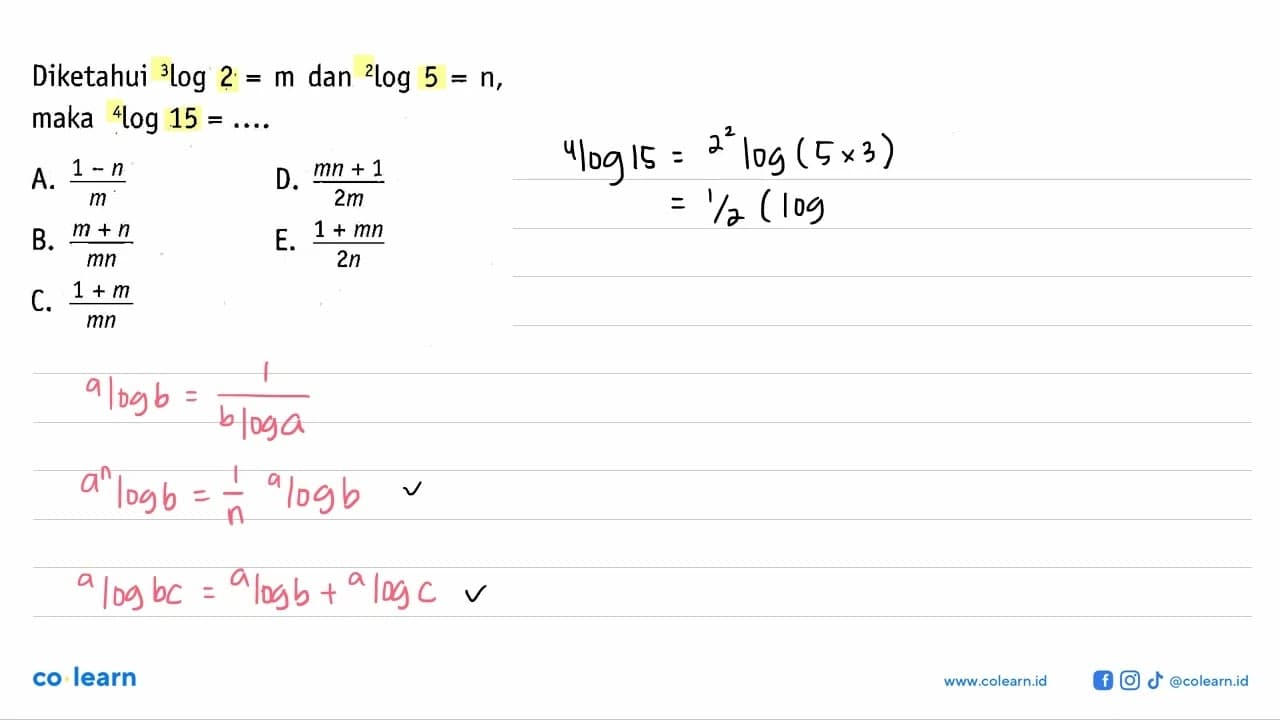 Diketahui ³log 2 = m dan ²log 5 = n,
maka ⁴log 15 = ....
A. (1 – n)/m
B. (m + n)/mn
C. (1 + m)/mn
D. (mn + 1)/2m
E. (1 + mn)/2n
⁴log 15 = 2² log (5 × 3)
= 1/2 (log
ᵃlog b = 1/ᵇlog a
aⁿ log b = 1/n ᵃlog b ✓
ᵃlog bc = ᵃlog b + ᵃlog c ✓
co learn
www.colearn.id
@colearn.id